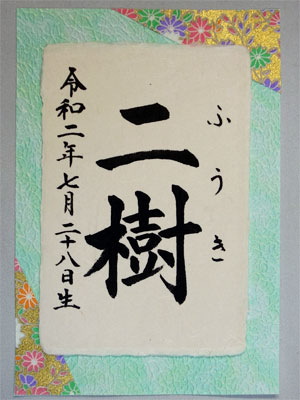 ふうき
二樹
令和二年七月二十八日生